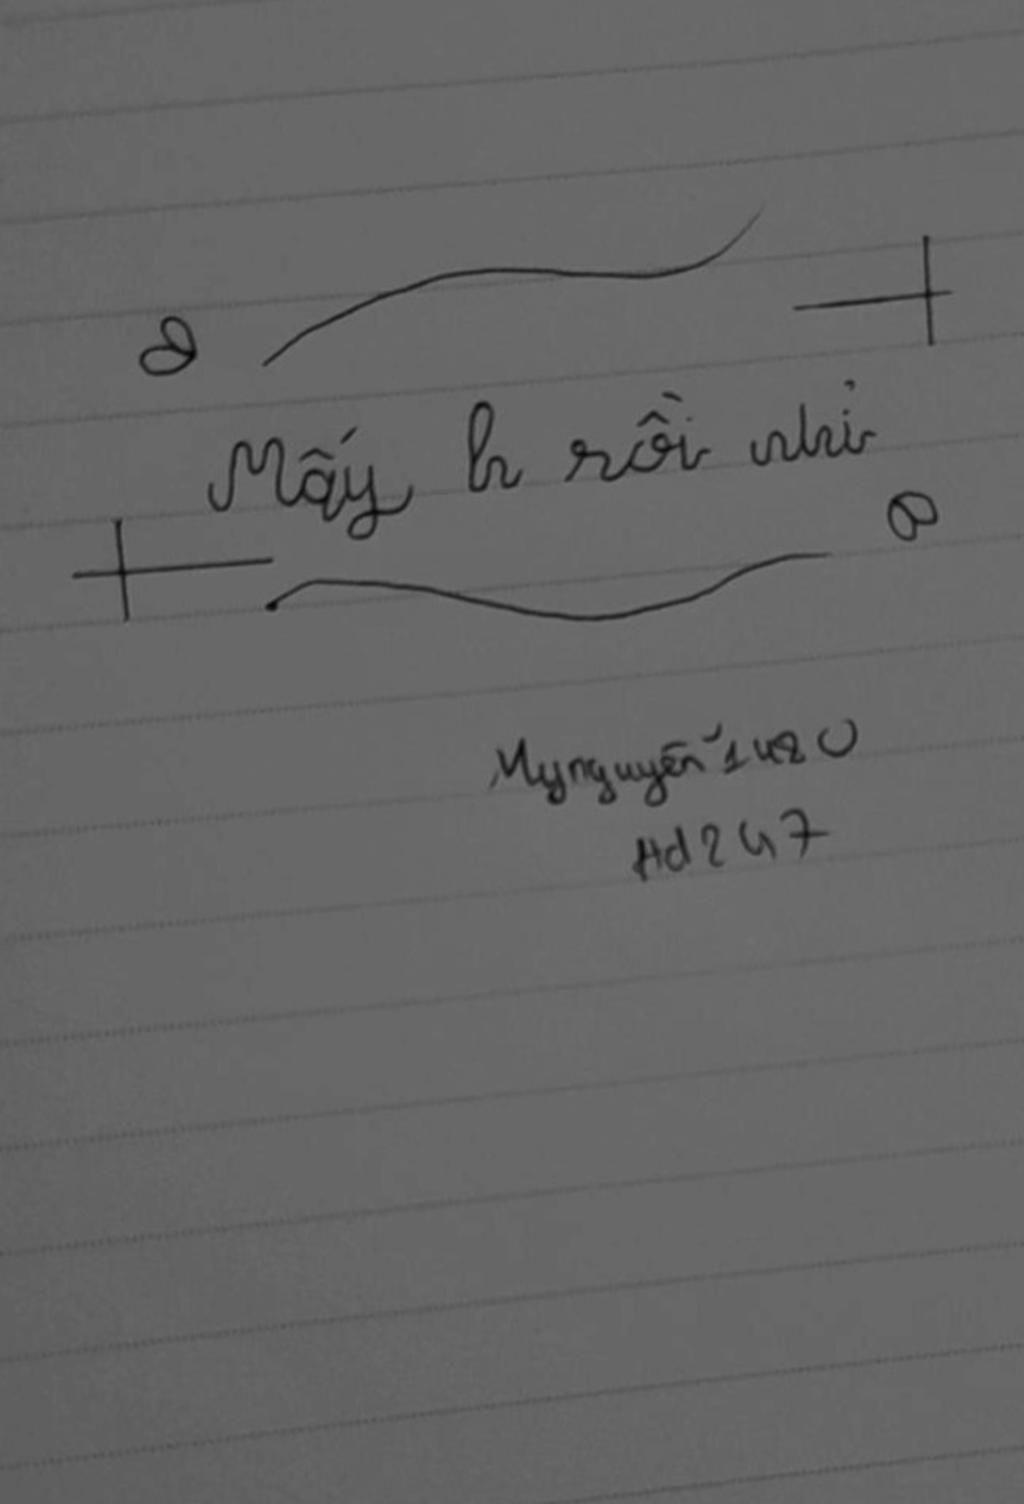 Mấy h rồi nhỉ
Mynguyễn1420
Hd247